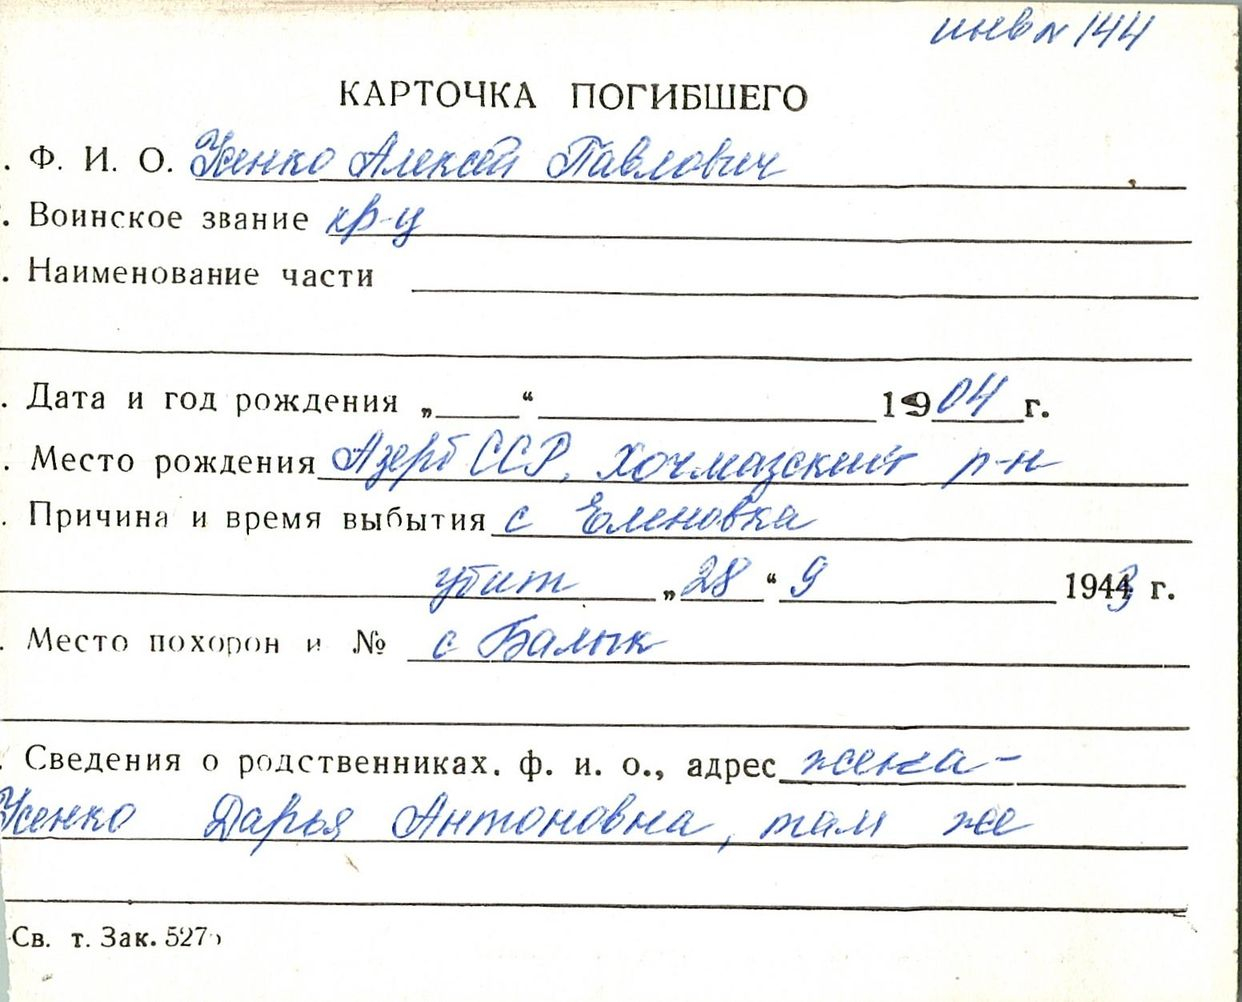 инв № 144
КАРТОЧКА ПОГИБШЕГО
. Ф. И. О. Усенко Алексей Павлович
. Воинское звание кр-ц
. Наименование части
. Дата и год рождения „ “ 1904 г.
. Место рождения Азерб ССР, Хочмазский р-н
. Причина и время выбытия с Еленовка
убит „28“ 9 1943 г.
. Место похорон и № с Балык
. Сведения о родственниках. ф. и. о., адрес жена -
Усенко Дарья Антоновна, там же
Св. т. Зак. 527